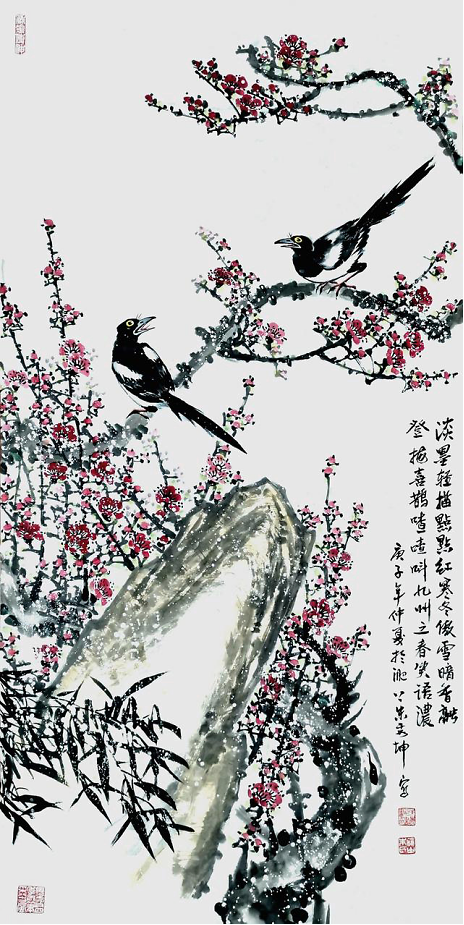 淡墨轻描點點红寒冬傲雪暗香融
登梅喜鹊喳喳叫九州立春笑语濃
庚子年仲夏於
坤写